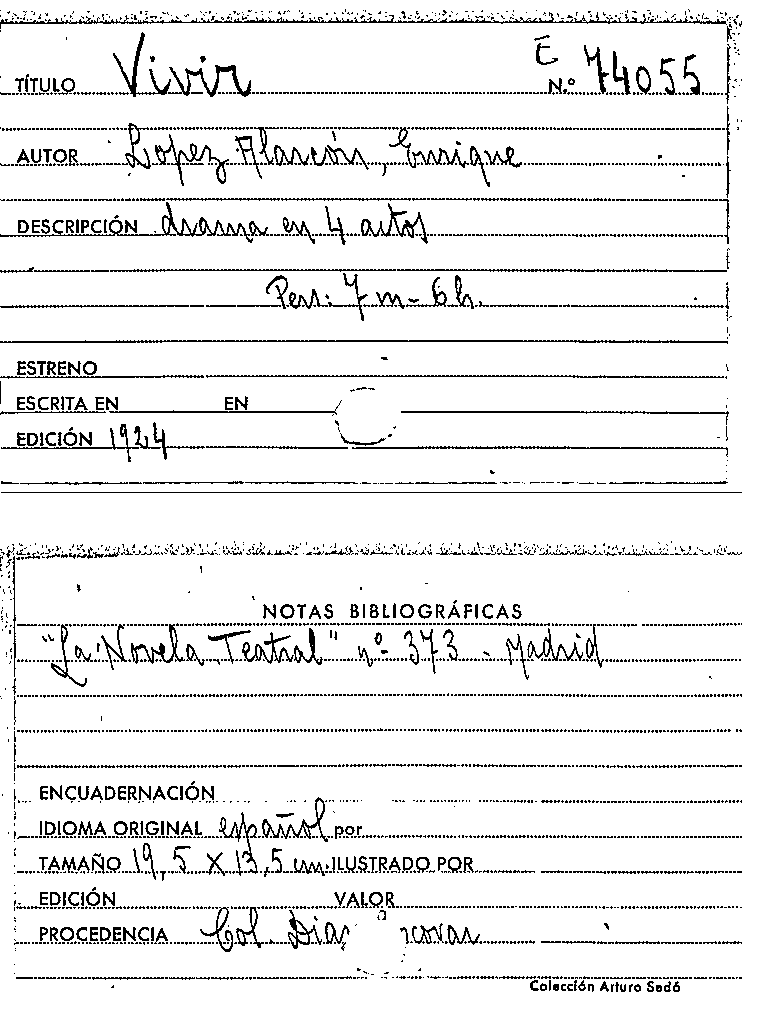 E
TÍTULO Vivir N.º 74055
AUTOR Lopez Alarcón, Enrique
DESCRIPCIÓN drama en 4 actos
Pers: 7 m - 6 h.
ESTRENO
ESCRITA EN EN
EDICIÓN 1924
NOTAS BIBLIOGRÁFICAS
"La Novela Teatral" nº 373 - Madrid
ENCUADERNACIÓN
IDIOMA ORIGINAL español por
TAMAÑO 19,5 X 13,5 cm. ILUSTRADO POR
EDICIÓN VALOR
PROCEDENCIA Col. Diaz
Colección Arturo Sedó